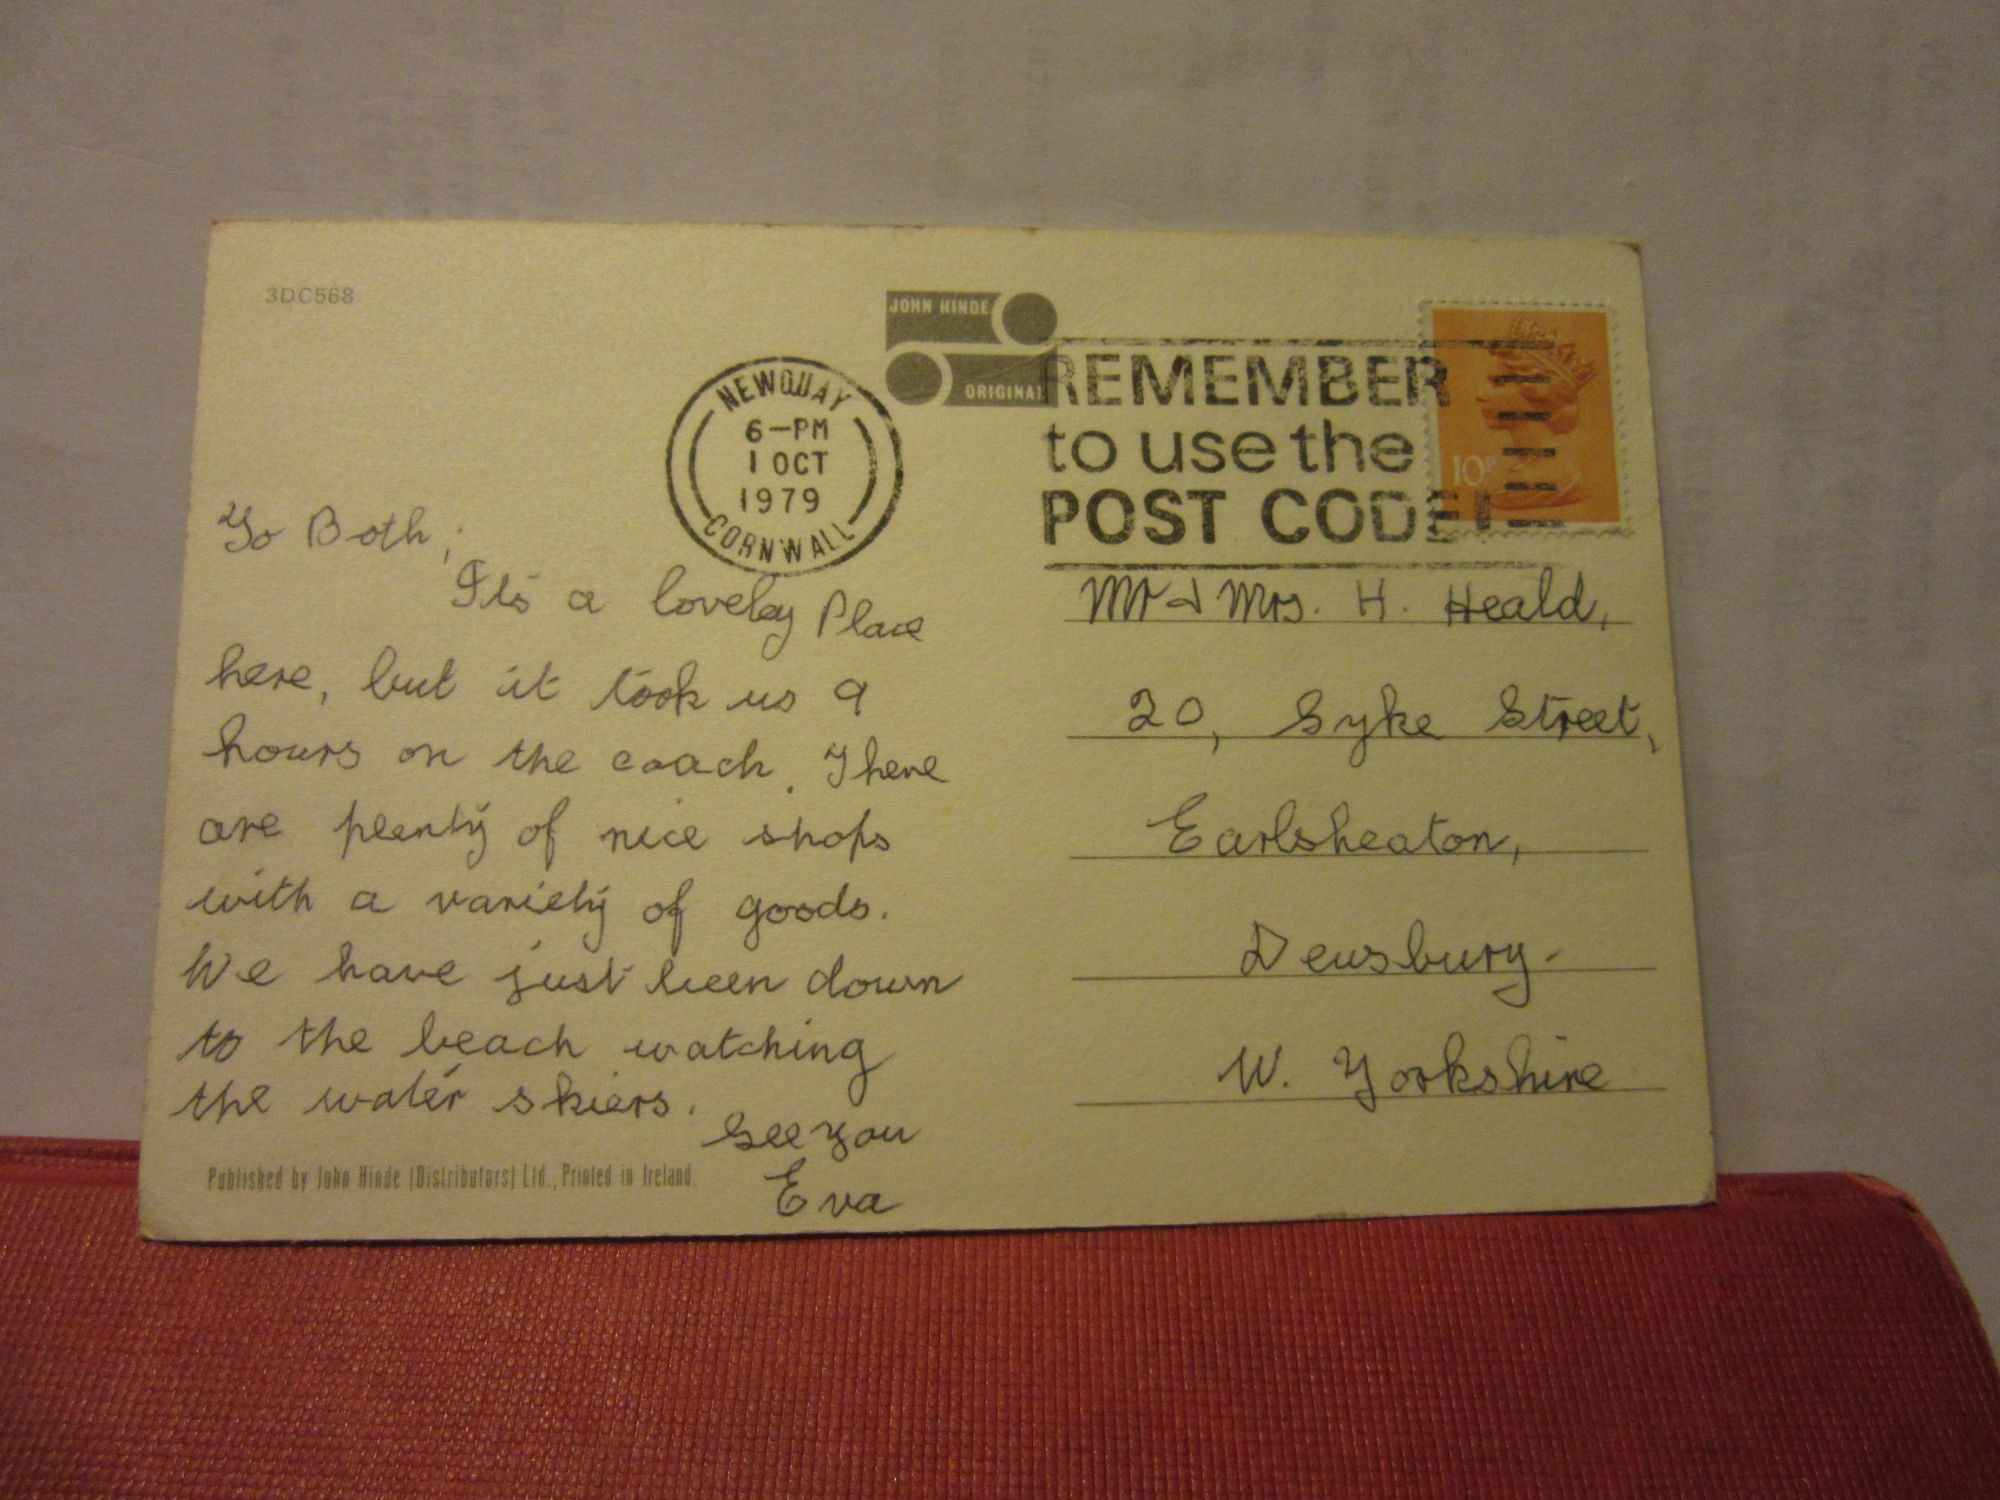 3DC568
JOHN HINDE
ORIGINAL
NEWQUAY
6-PM
1 OCT
1979
CORNWALL
REMEMBER
to use the
POST CODE!
10P
To Both,
It's a loveley Place
here, but it took us 9
hours on the coach. There
are plenty of nice shops
with a variety of goods.
We have just been down
to the beach watching
the water skiers.
See you
Eva
Published by John Hinde (Distributors) Ltd., Printed in Ireland.
Mr & Mrs. H. Heald,
20, Syke Street,
Earlsheaton,
Dewsbury.
W. Yorkshire